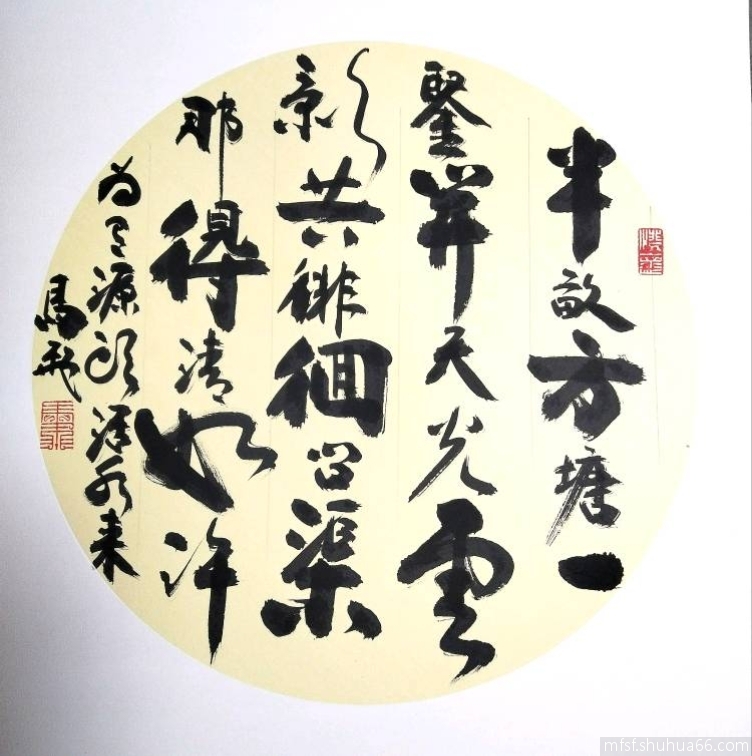 半畝方塘一
鑒開天光雲
影共徘徊問渠
那得清如許
為有源頭活水來
馬飛
mfsf.shuhua66.com